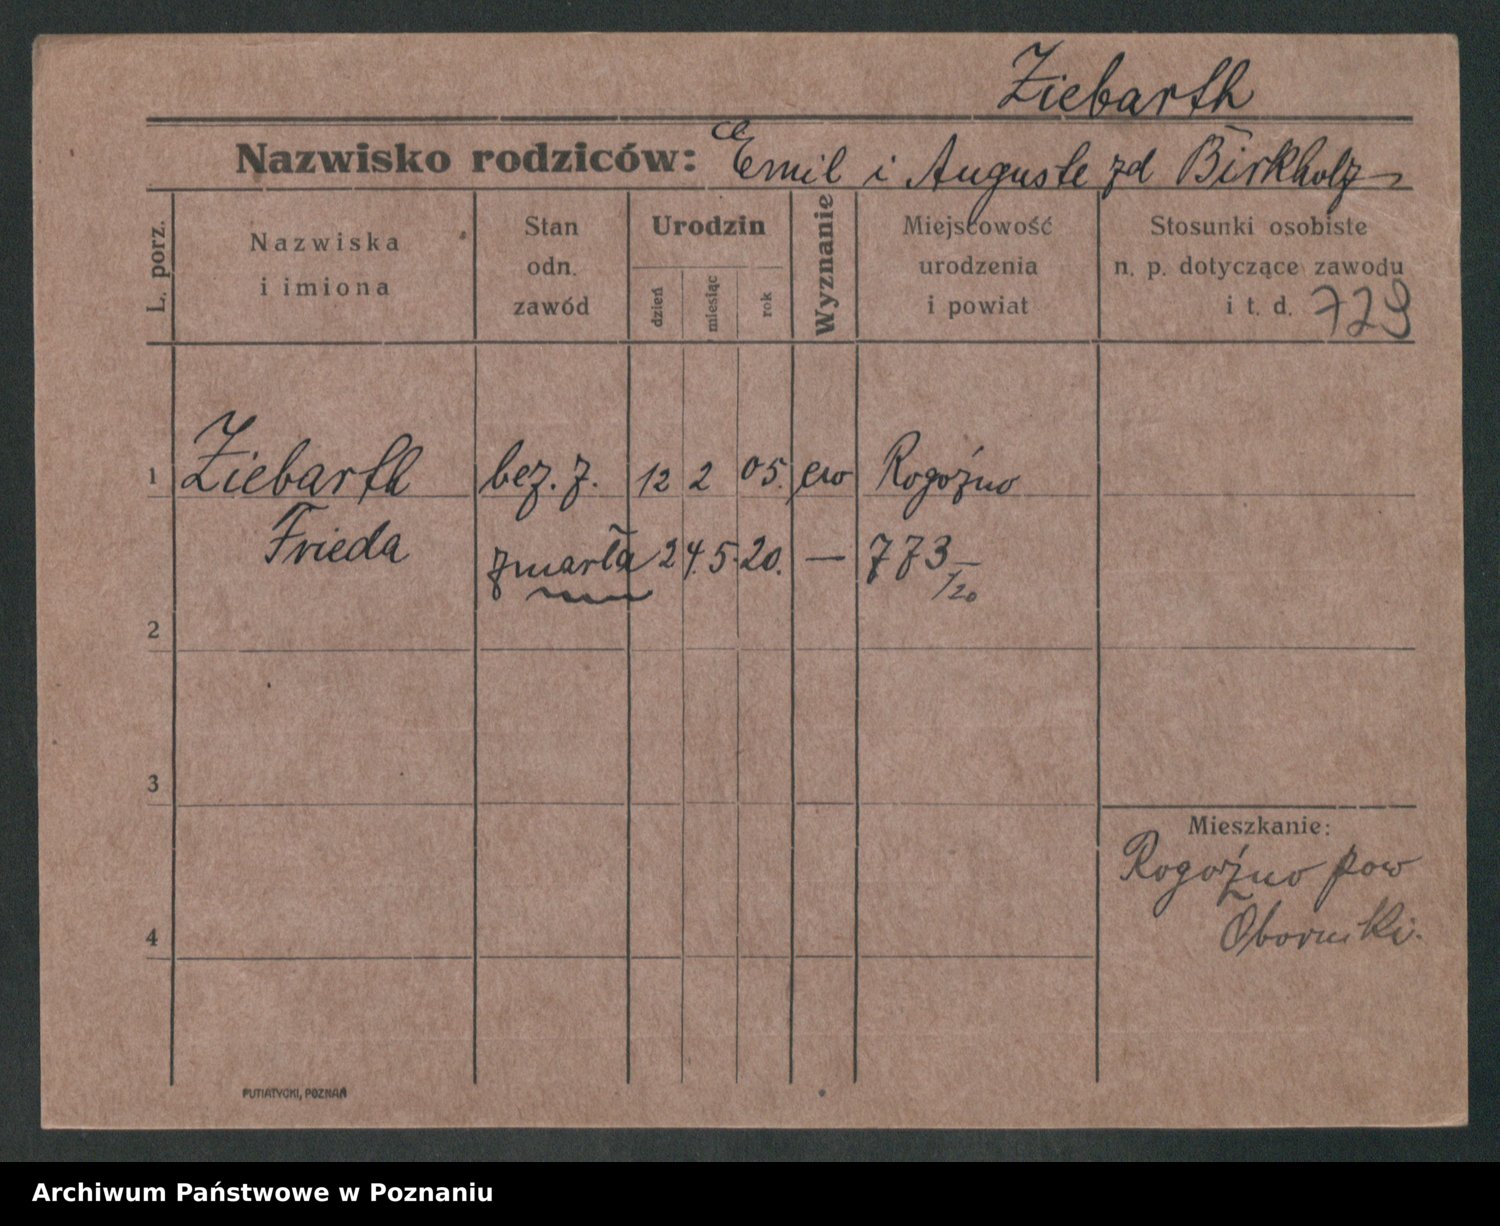 Ziebarth
Nazwisko rodziców: Emil i Auguste zd Birkholz
L. porz.
Nazwiska i imiona
Stan odn. zawód
Urodzin
dzień
miesiąc
rok
Wyznanie
Miejscowość urodzenia i powiat
Stosunki osobiste
n. p. dotyczące zawodu
i t. d. 729
1 Ziebarth bez. z. 12 2 05. ew Rogoźno
Frieda zmarła 24. 5. 20. — 773/20
2
3
Mieszkanie:
Rogoźno pow
Oborniki.
4
PUTIATYCKI, POZNAŃ
Archiwum Państwowe w Poznaniu